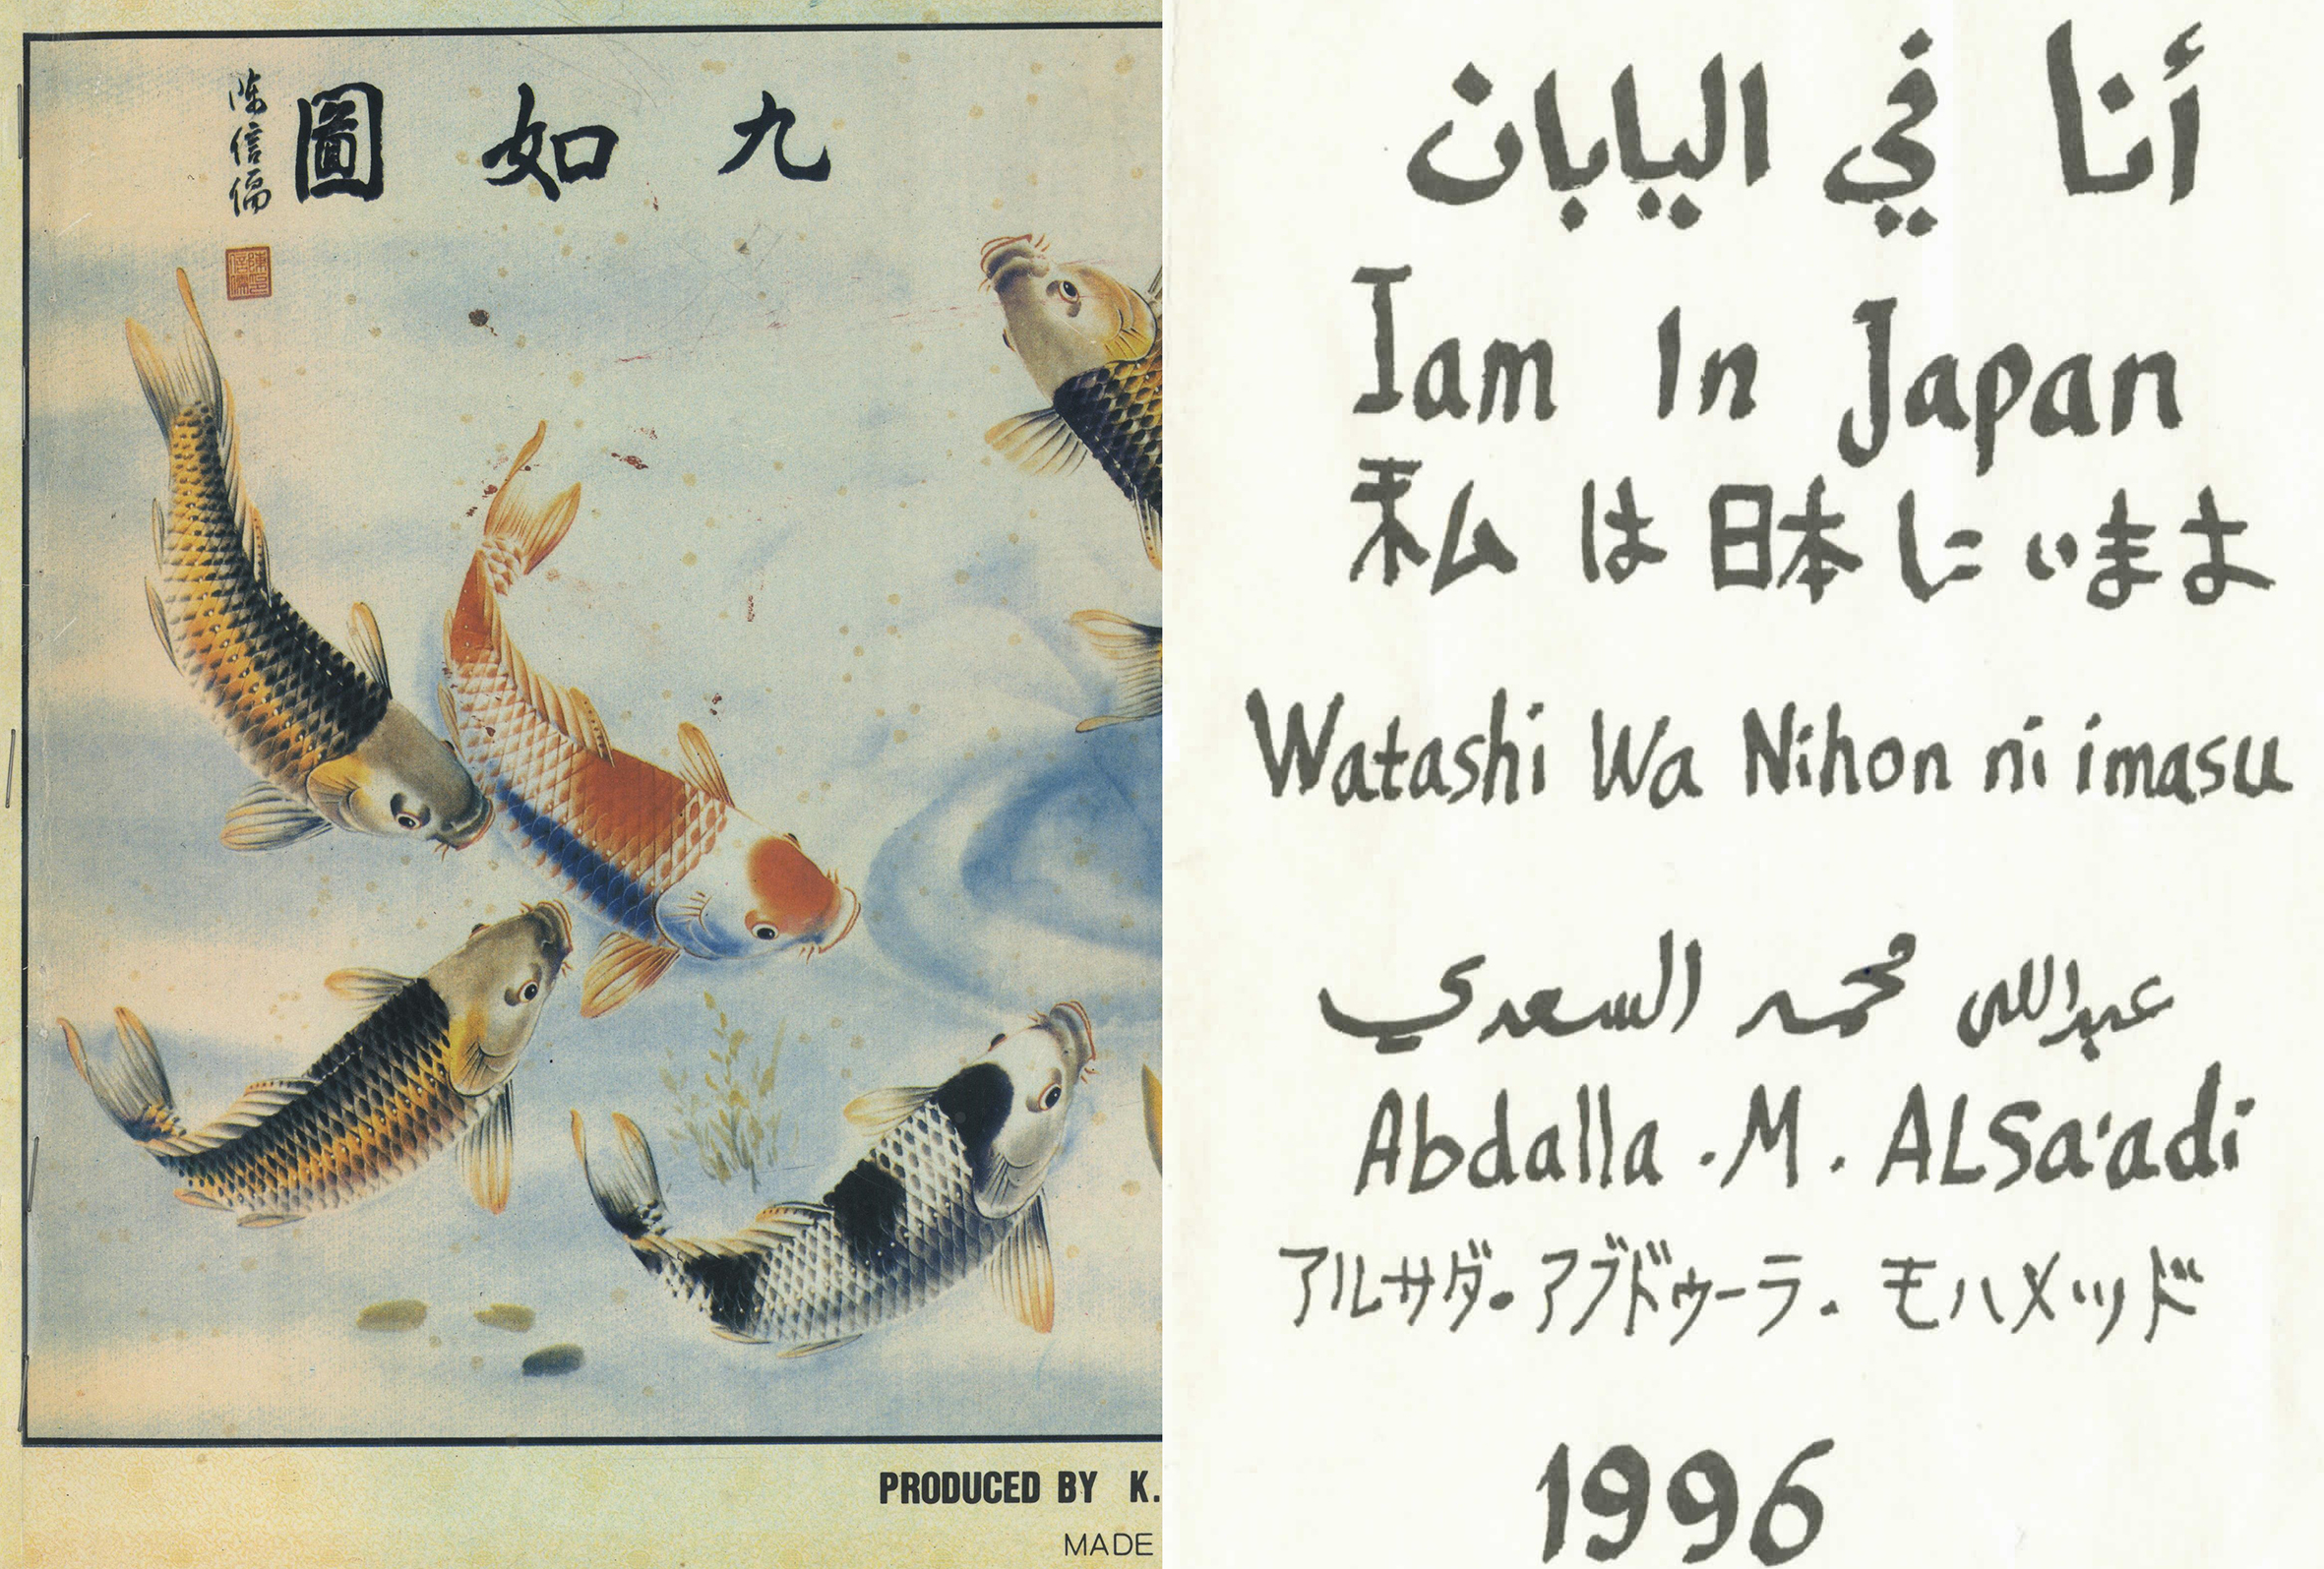 九如圖
陈信
PRODUCED BY K.
MADE
أنا في اليابان
I am In Japan
私は日本にいます
Watashi Wa Nihon ni imasu
عبدالله محمد السعدي
Abdalla . M . ALSa'adi
アルサダ・アブドゥーラ・モハメッド
1996